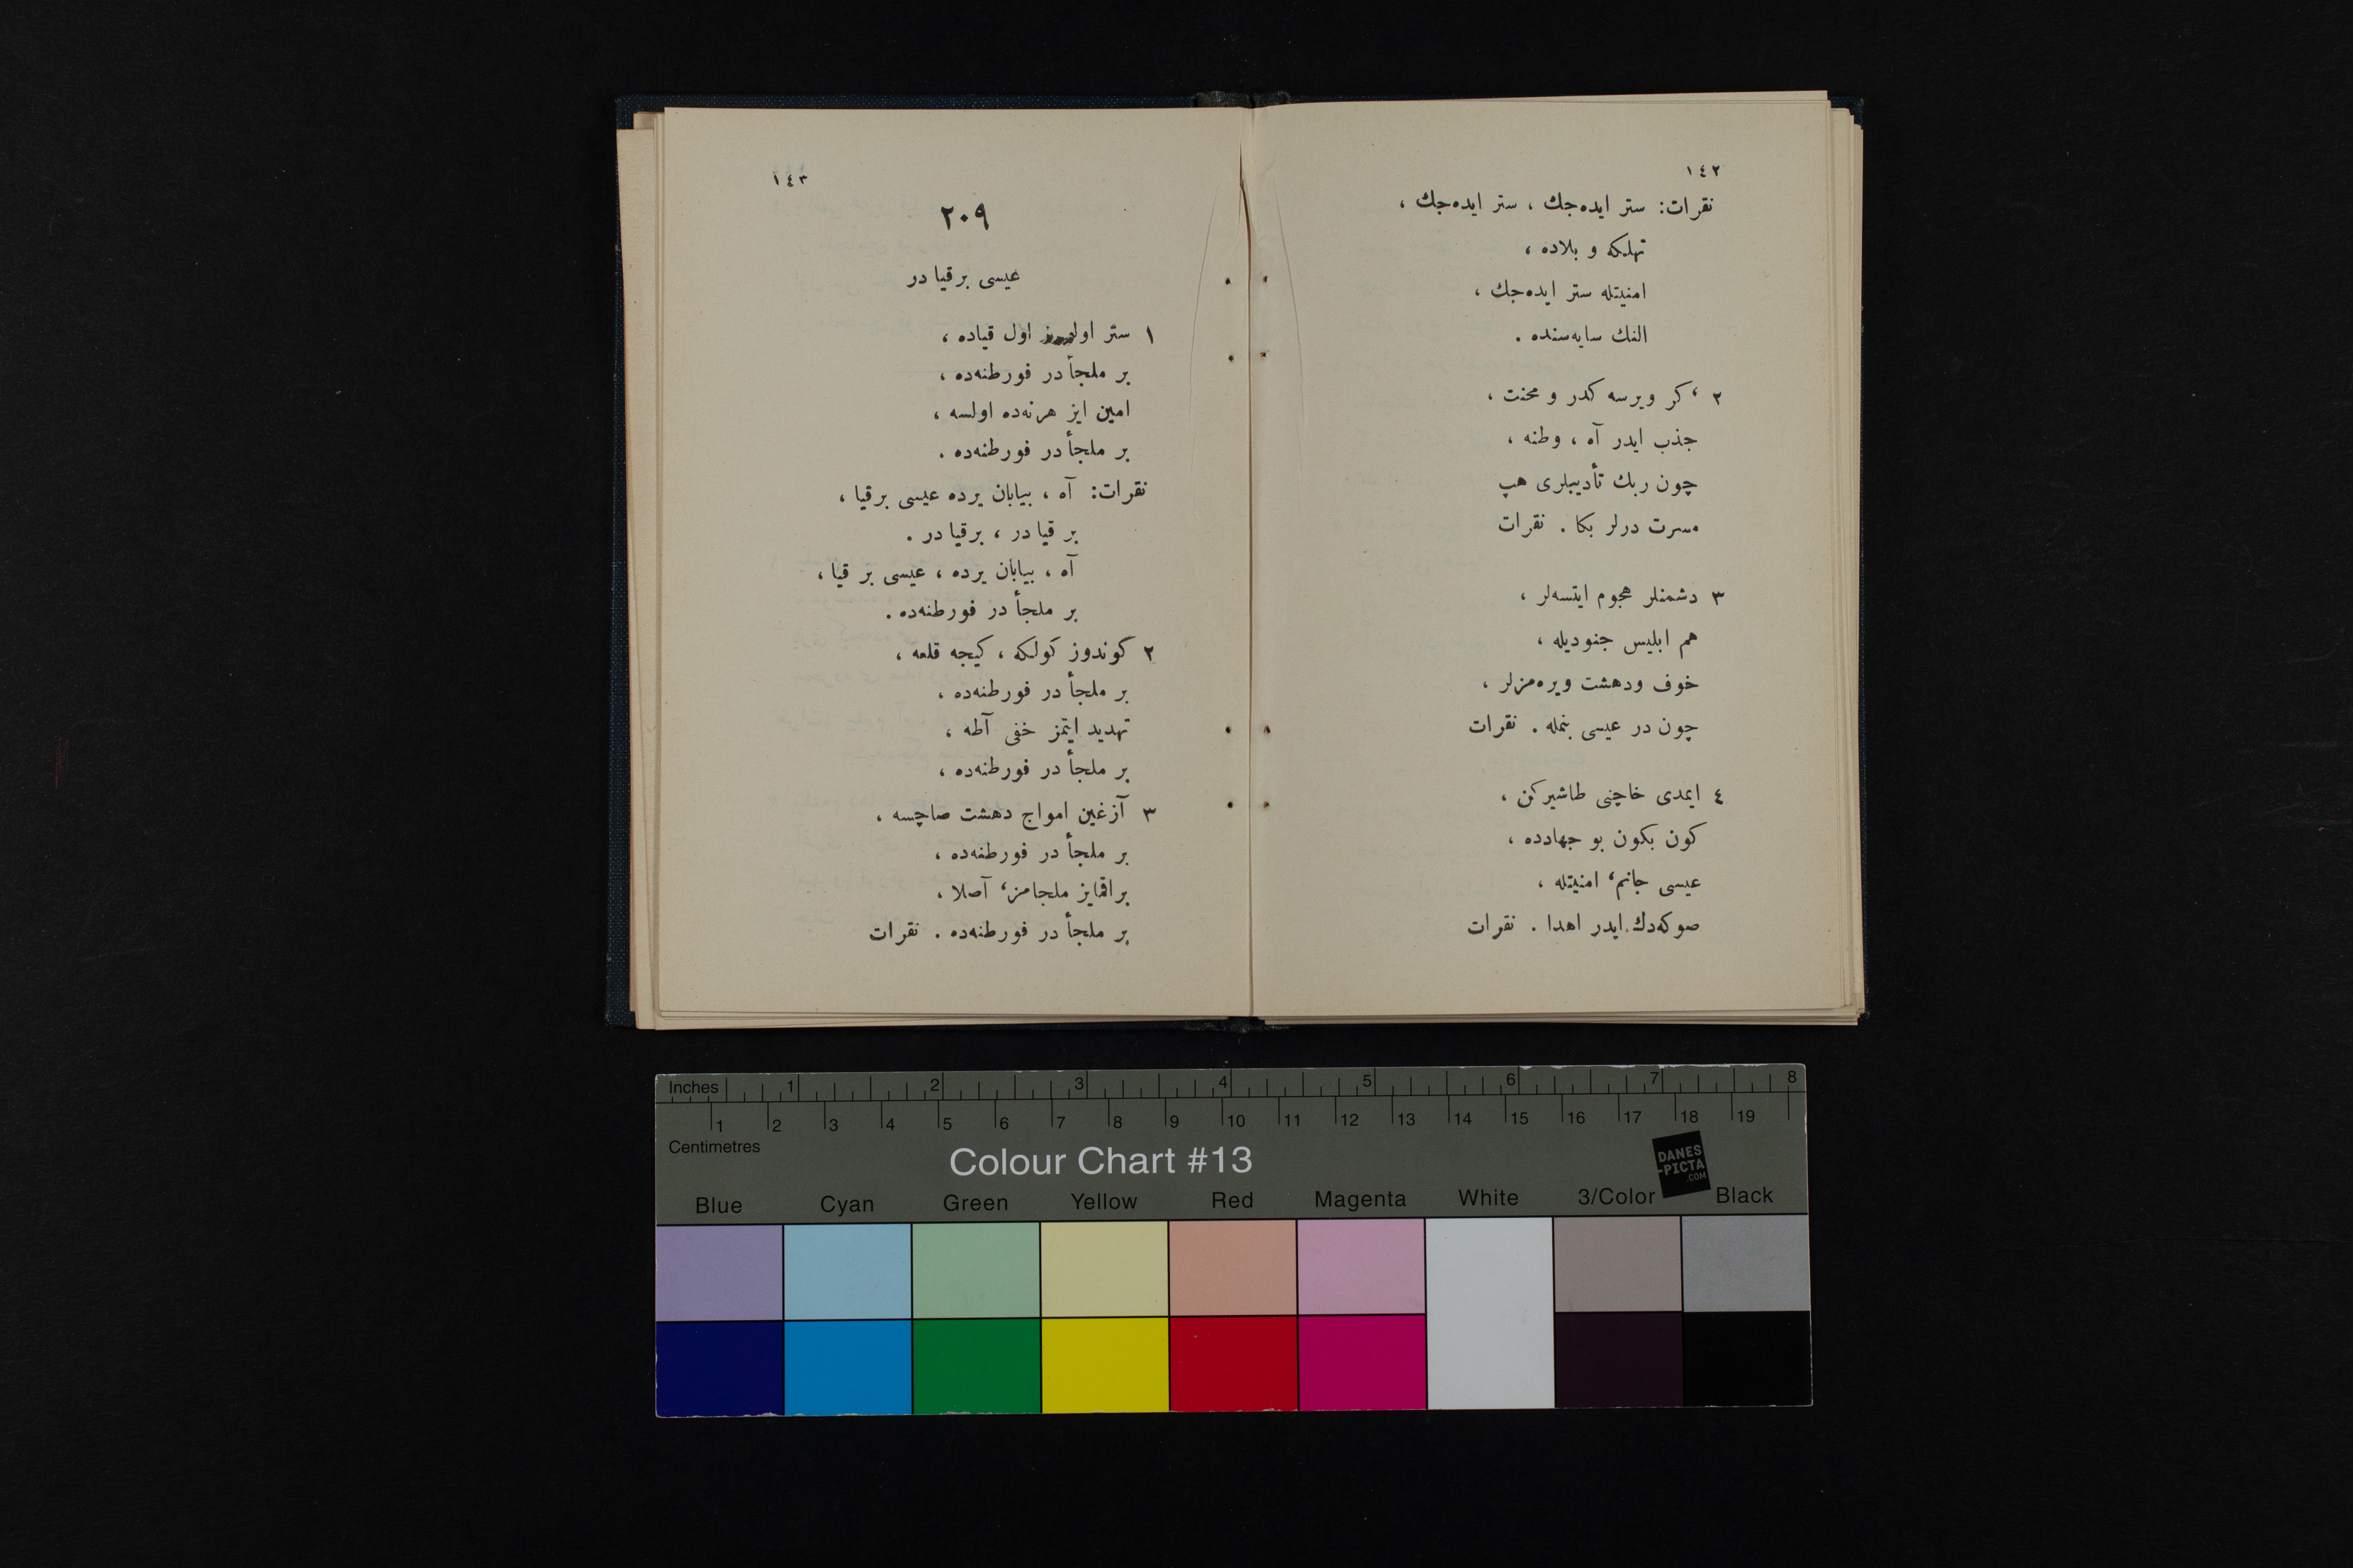 ١٤٢
نقرات: ستر ايده‌جك ، ستر ايده‌جك ،
تهلكه و بلاده ،
امنيتله ستر ايده‌جك ،
النك سايه‌سنده .
٢ ‘كر ويرسه كدر و محنت ،
جذب ايدر آه ، وطنه ،
چون ربك تأديبلرى هپ
مسرت درلر بكا . نقرات
٣ دشمنلر هجوم ايتسه‌لر ،
هم ابليس جنوديله ،
خوف ودهشت ويره‌مزلر ،
چون در عيسى بنمله . نقرات
٤ ايمدى خاچنى طاشيركن ،
كون بكون بو جهادده ،
عيسى جانم‘ امنيتله ،
صوكه‌دك ايدر اهدا . نقرات
١٤٣
٢٠٩
عيسى برقيا در
١ ستر اول قياده ،
بر ملجأ در فورطنه‌ده ،
امين ايز هرنه‌ده اولسه ،
بر ملجأ در فورطنه‌ده .
نقرات: آه ، بيابان يرده عيسى برقيا ،
بر قيا در ، برقيا در .
آه ، بيابان يرده ، عيسى بر قيا ،
بر ملجأ در فورطنه‌ده .
٢ گوندوز كولكه ، كيجه قلعه ،
بر ملجأ در فورطنه‌ده ،
تهديد ايتمز خفى آطه ،
بر ملجأ در فورطنه‌ده ،
٣ آزغين امواج دهشت صاچسه ،
بر ملجأ در فورطنه‌ده ،
براقمايز ملجامز‘ آصلا ،
بر ملجأ در فورطنه‌ده . نقرات
Inches 1 2 3 4 5 6 7 8
1 2 3 4 5 6 7 8 9 10 11 12 13 14 15 16 17 18 19
Centimetres
Colour Chart #13
DANES
-PICTA
.COM
Blue Cyan Green Yellow Red Magenta White 3/Color Black